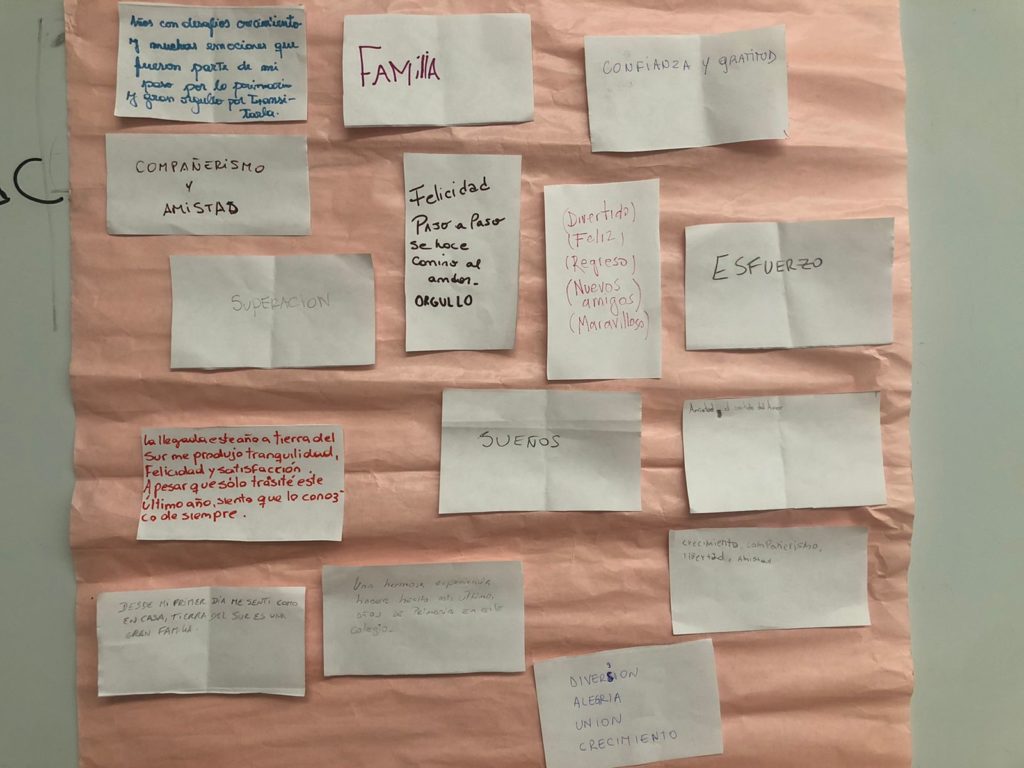 Años con desafíos crecimiento
y muchas emociones que
fueron parte de mi
paso por la primaria
y gran orgullo por Transi-
tarla.
FAMiliA
CONFIANZA y GRATITUD
COMPAÑERISMO
Y
AMISTAD
Felicidad
Paso a Paso
se hace
camino al
andar.
ORGULLO
(Divertido)
(Feliz)
(Regreso)
(Nuevos
amigos)
(Maravilloso)
ESFUERZO
SUPERACIÓN
SUEÑOS
Amistad el sentido del Amor
La llegada este año a tierra del
Sur me produjo tranquilidad,
Felicidad y satisfacción.
Apesar que sólo trásité este
último año, siento que lo conoz-
co de siempre.
crecimiento, compañerismo,
libertad, Amistad
DESDE MI PRIMER DÍA ME SENTÍ COMO
EN CASA, TIERRA DEL SUR ES UNA
GRAN FAMILIA.
Una hermosa experiencia
haber hecho mis últimos
años de Primaria en este
Colegio.
DIVERSIÓN
ALEGRIA
UNION
CRECIMIENTO
C